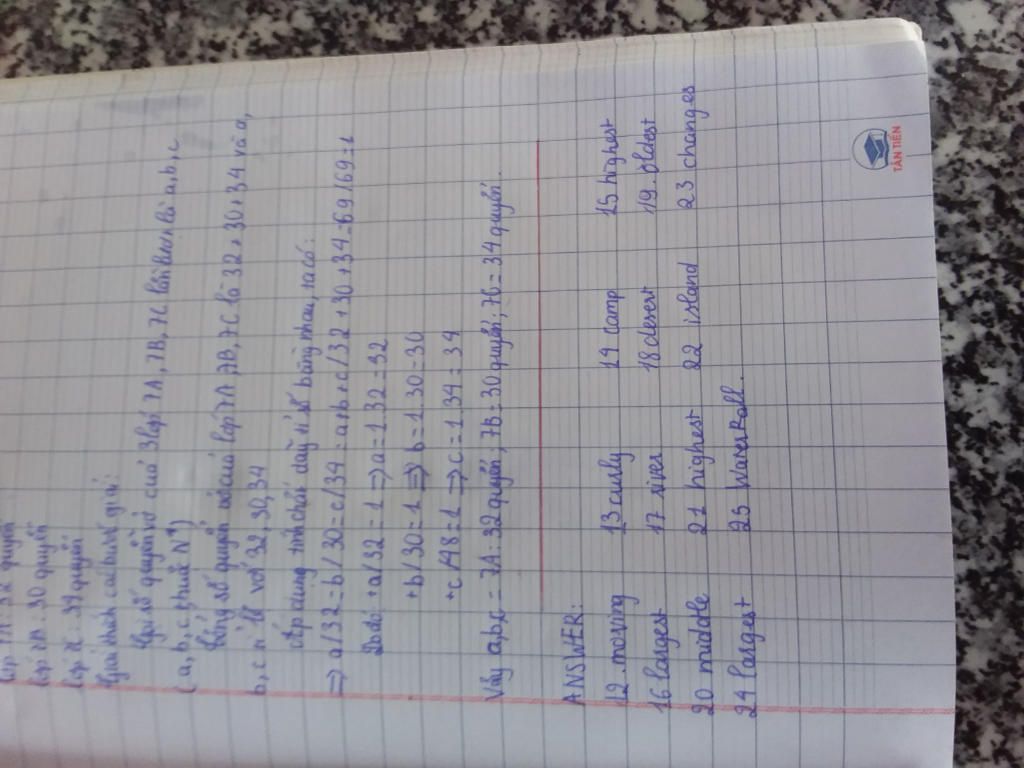 lớp 7A: 32 quyển
lớp 7B: 30 quyển
lớp 7C: 34 quyển
Giải thích các bước giải:
Gọi số quyển vở của 3 lớp 7A, 7B, 7C lần lượt là a, b, c
(a, b, c thuộc N*)
số quyển của lớp 7A, 7B, 7C là 32, 30, 34 và a,
b, c tỉ lệ với 32, 30, 34
Áp dụng tính chất dãy tỉ số bằng nhau, ta có:
⇒ a/32 = b/30 = c/34 = a+b+c/32+30+34 = 69/69 = 1
Do đó: + a/32 = 1 ⇒ a = 1.32 = 32
+ b/30 = 1 ⇒ b = 1.30 = 30
+ c/48 = 1 ⇒ c = 1.34 = 34
Vậy a,b,c = 7A: 32 quyển; 7B = 30 quyển; 7C = 34 quyển.
ANSWER:
12. moving 13 curly 14 camp 15 highest
16 largest 17 river 18 desert 19. oldest
20 middle 21 highest 22 island 23 changes
24 largest 25 Waterfall.
TÂN TIẾN